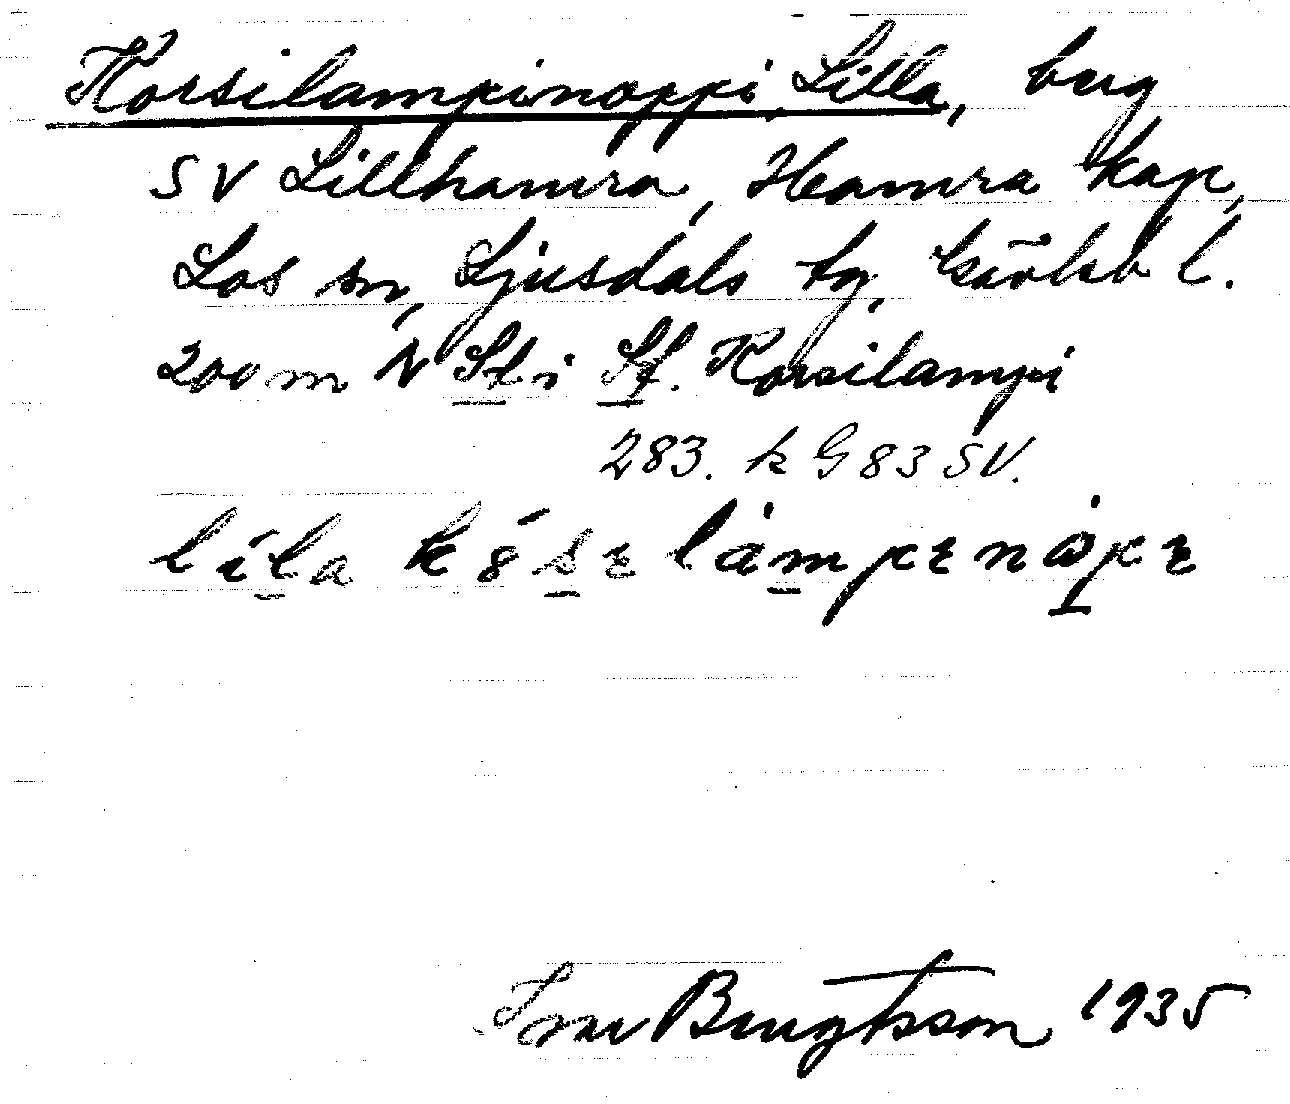 Korsilampinoppi, Lilla, berg
SV Lillhamra, Hamra kap,
Los sn, Ljusdals tg, Gävleb l.
200 m N St i St. Korsilampi
283. k G 83 SV.
Bengtsson 1935